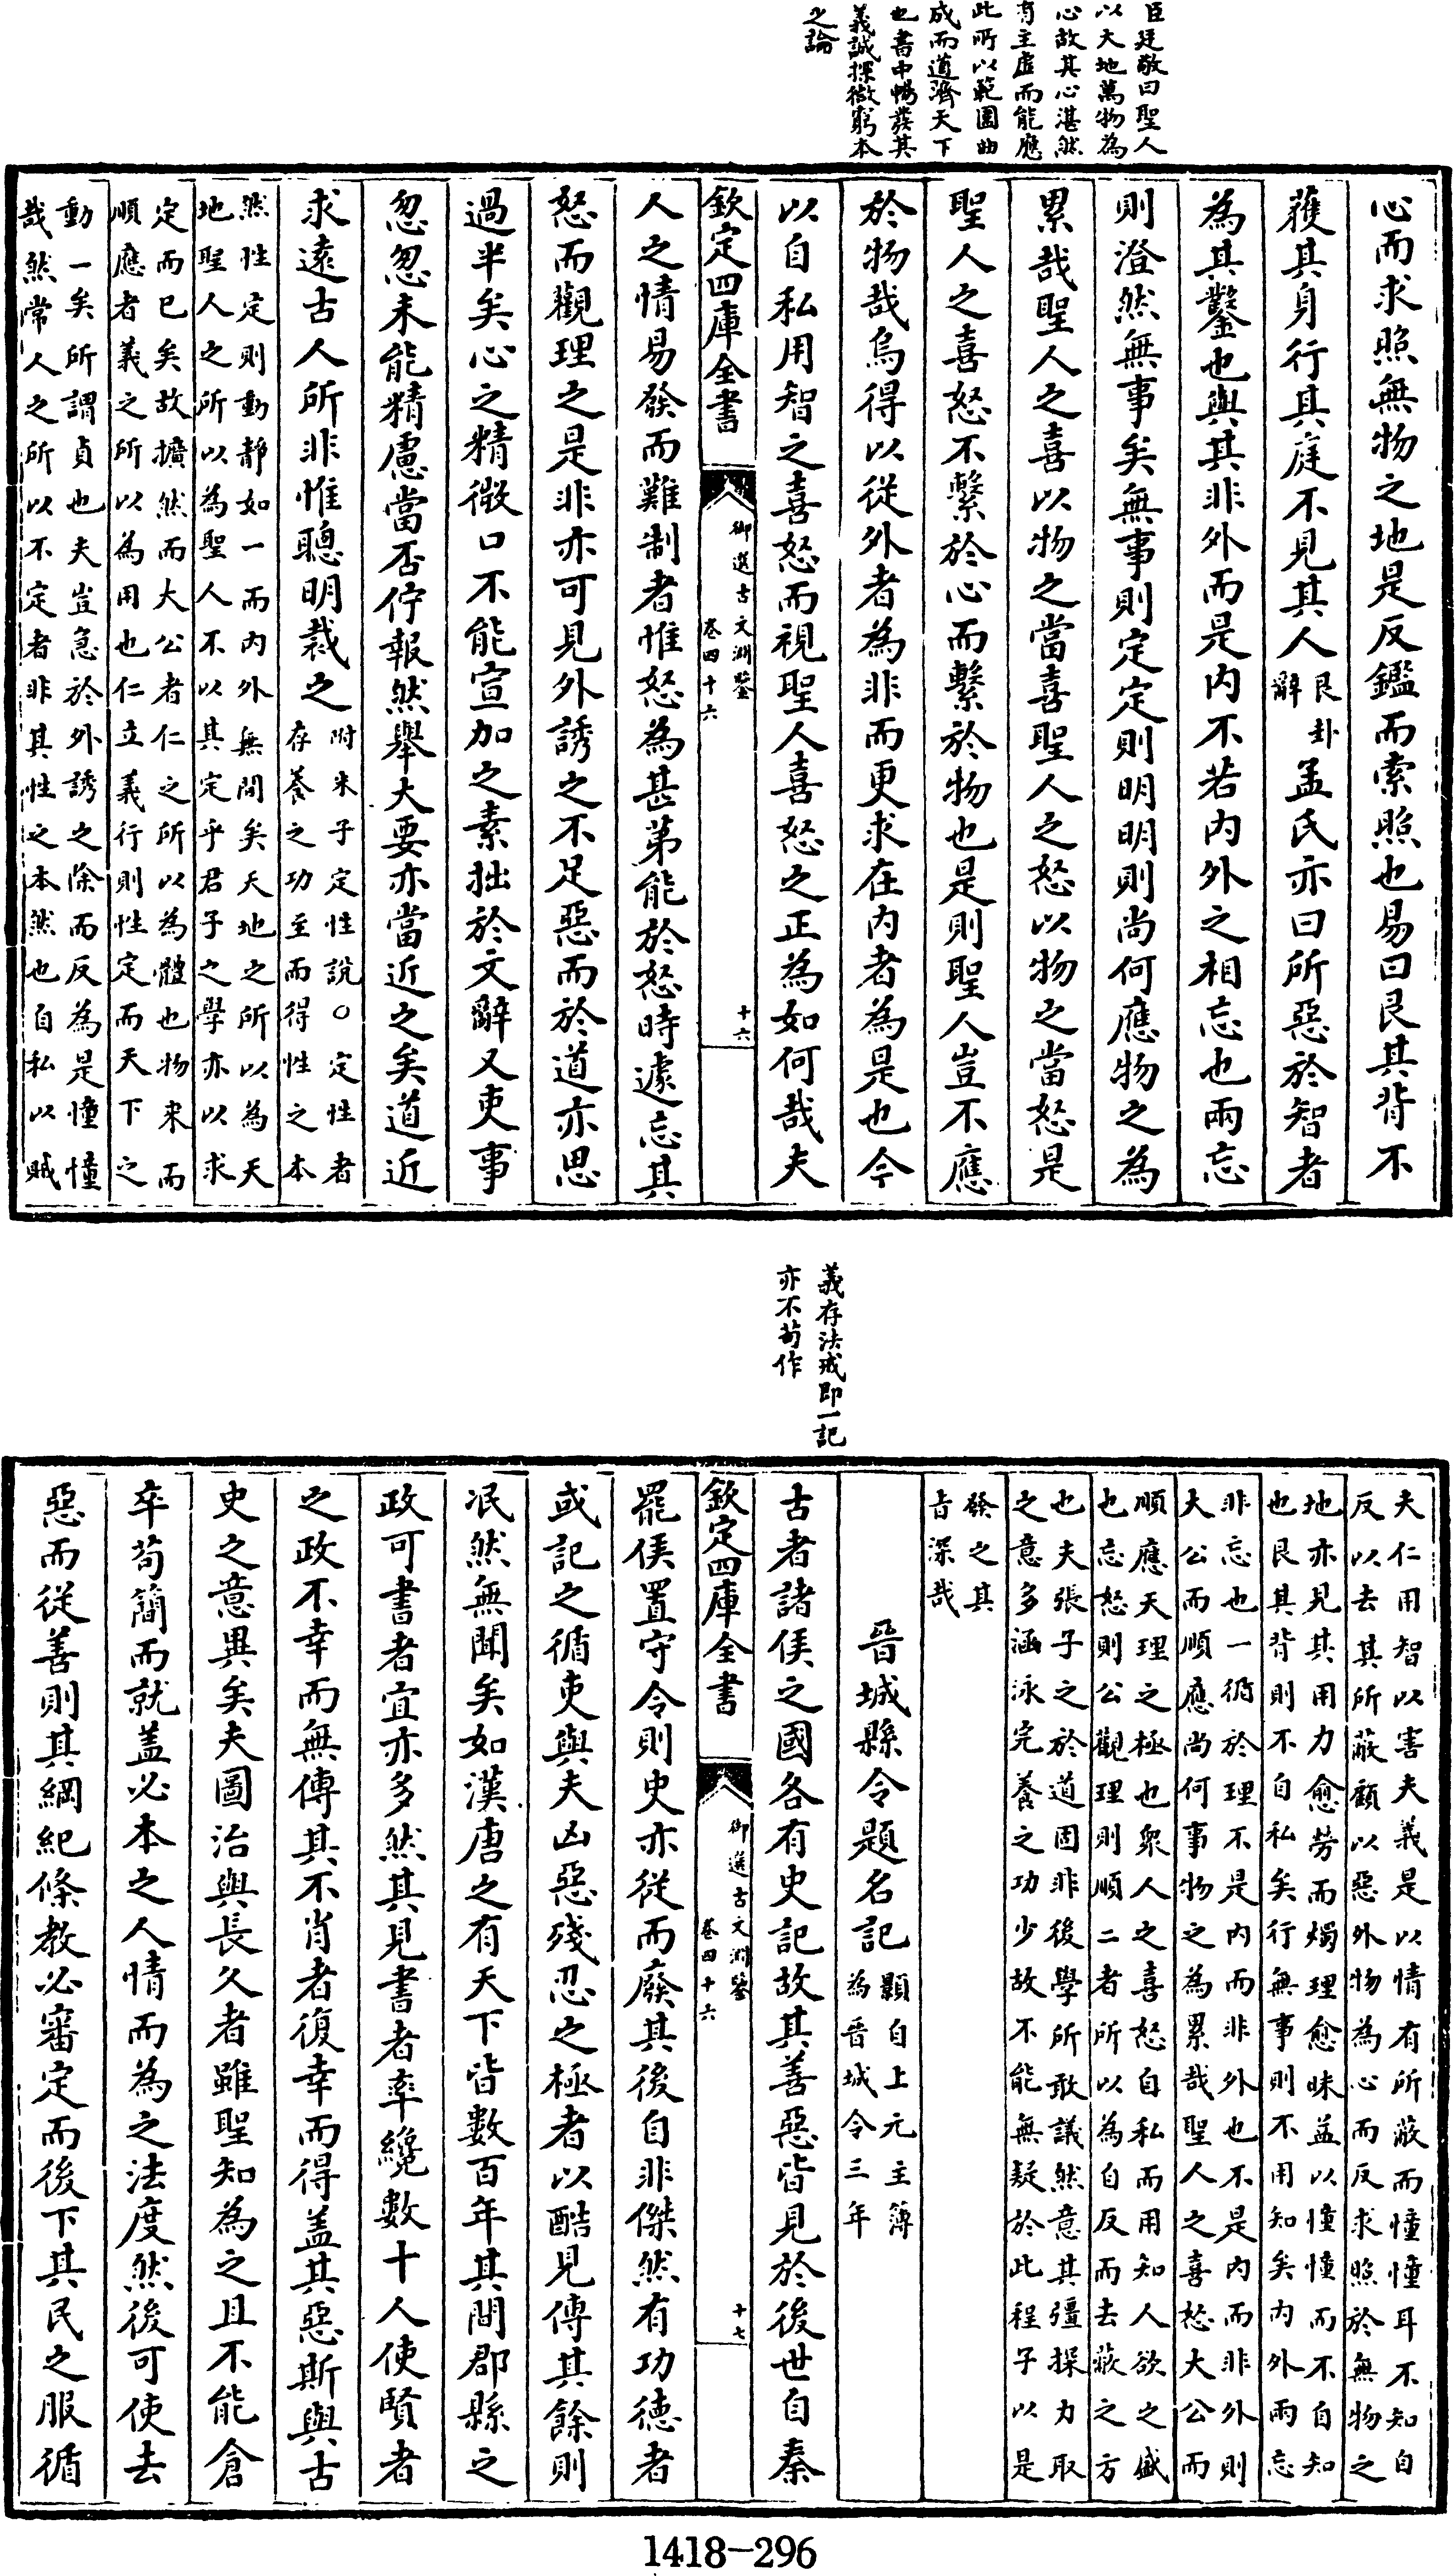 臣廷敬曰聖人
以天地萬物為
心故其心湛然
有主虛而能應
此所以範圍曲
成而道濟天下
也書中暢發其
義誠探微窮本
之論
心而求照無物之地是反鑑而索照也易曰艮其背不
獲其身行其庭不見其人艮卦
辭孟氏亦曰所惡於智者
為其鑿也與其非外而是内不若内外之相忘也兩忘
則澄然無事矣無事則定定則明明則尚何應物之為
累哉聖人之喜以物之當喜聖人之怒以物之當怒是
聖人之喜怒不繫於心而繫於物也是則聖人豈不應
於物哉烏得以從外者為非而更求在内者為是也今
以自私用智之喜怒而視聖人喜怒之正為如何哉夫
欽定四庫全書
御選古文淵鑒
卷四十六
十六
人之情易發而難制者惟怒為甚第能於怒時遽忘其
怒而觀理之是非亦可見外誘之不足惡而於道亦思
過半矣心之精微口不能宣加之素拙於文辭又吏事
忽忽未能精慮當否佇報然舉大要亦當近之矣道近
求遠古人所非惟聰明裁之附朱子定性說○定性者
存養之功至而得性之本
然性定則動靜如一而内外無間矣天地之所以為天
地聖人之所以為聖人不以其定乎君子之學亦以求
定而已矣故擴然而大公者仁之所以為體也物来而
順應者義之所以為用也仁立義行則性定而天下之
動一矣所謂貞也夫豈急於外誘之除而反為是憧憧
哉然常人之所以不定者非其性之本然也自私以賊
義存法戒即一記
亦不苟作
夫仁用智以害夫義是以情有所蔽而憧憧耳不知自
反以去其所蔽顧以惡外物為心而反求照於無物之
地亦見其用力愈勞而燭理愈昧益以憧憧而不自知
也艮其背則不自私矣行無事則不用知矣内外兩忘
非忘也一循於理不是内而非外也不是内而非外則
大公而順應尚何事物之為累哉聖人之喜怒大公而
順應天理之極也衆人之喜怒自私而用知人欲之盛
也忘怒則公觀理則順二者所以為自反而去蔽之方
也夫張子之於道固非後學所敢議然意其彊探力取
之意多涵泳完養之功少故不能無疑於此程子以是
發之其
旨深哉
晉城縣令題名記顥自上元主簿
為晉城令三年
古者諸侯之國各有史記故其善惡皆見於後世自秦
欽定四庫全書
御選古文淵鑒
卷四十六
十七
罷侯置守令則史亦從而廢其後自非傑然有功德者
或記之循吏與夫凶惡殘忍之極者以酷見傳其餘則
泯然無聞矣如漢唐之有天下皆數百年其間郡縣之
政可書者宜亦多然其見書者率纔數十人使賢者
之政不幸而無傳其不肖者復幸而得盖其惡斯與古
史之意異矣夫圖治與長久者雖聖知為之且不能倉
卒苟簡而就盖必本之人情而為之法度然後可使去
惡而從善則其綱紀條教必審定而後下其民之服循
1418-296